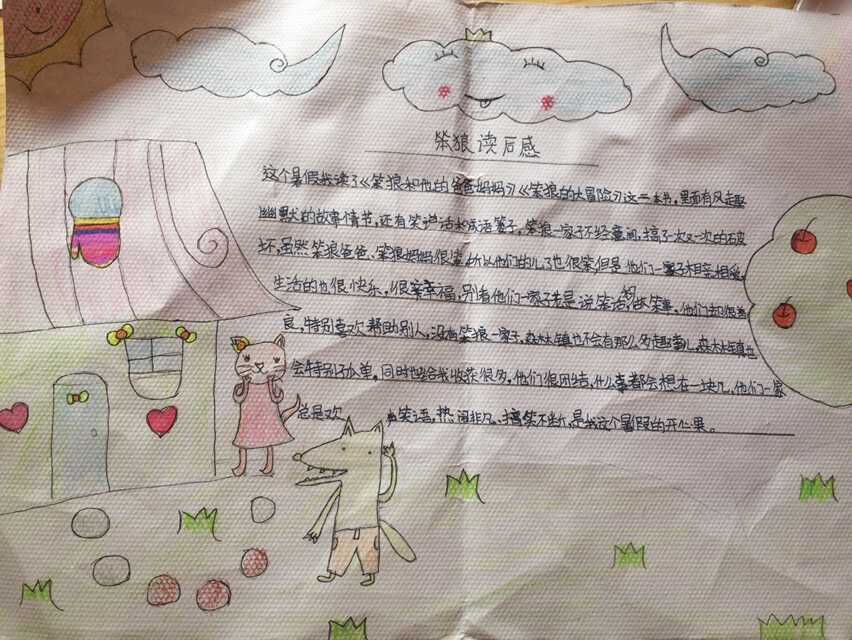 笨狼读后感
这个暑假我读了《笨狼和他的爸爸妈妈》《笨狼的大冒险》这二本书，里面有风趣
幽默的故事情节，还有笑话和成语等了，笨狼一家子不经意间，搞了一次又一次的破
坏，虽然笨狼爸爸、笨狼妈妈很笨，所以他们的儿子也很笨，但是他们一家子相亲相爱，
生活的也很快乐，很幸福，别看他们一家子老是说笑话，做笨事，他们却很善
良，特别喜欢帮助别人，没有笨狼一家子，森林镇也不会有那么多趣事儿，森林镇也
会特别孤单。同时也给我收获很多，他们很团结，什么事都会想在一块儿，他们一家
总是欢 笑语，热闹非凡、搞笑不断，是我这个暑假的开心果。